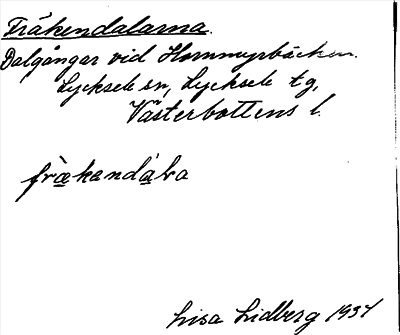 Fräkendalarna.
Dalgångar vid Hornmyrbäcken.
Lycksele sn, Lycksele tg,
Västerbottens l.
fræ̀kandáɫa
Lisa Lidberg 1934